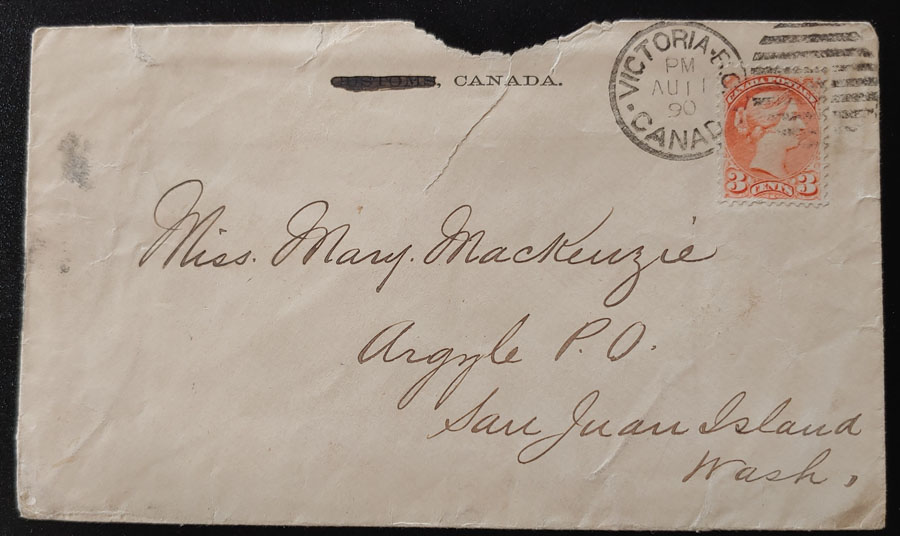 CUSTOMS, CANADA.
VICTORIA·B.C.
PM
AU 11
90
CANADA
CANADA POSTAGE
3 CENTS 3
Miss. Mary. MacKenzie
Argyle P.O.
San Juan Island
Wash,